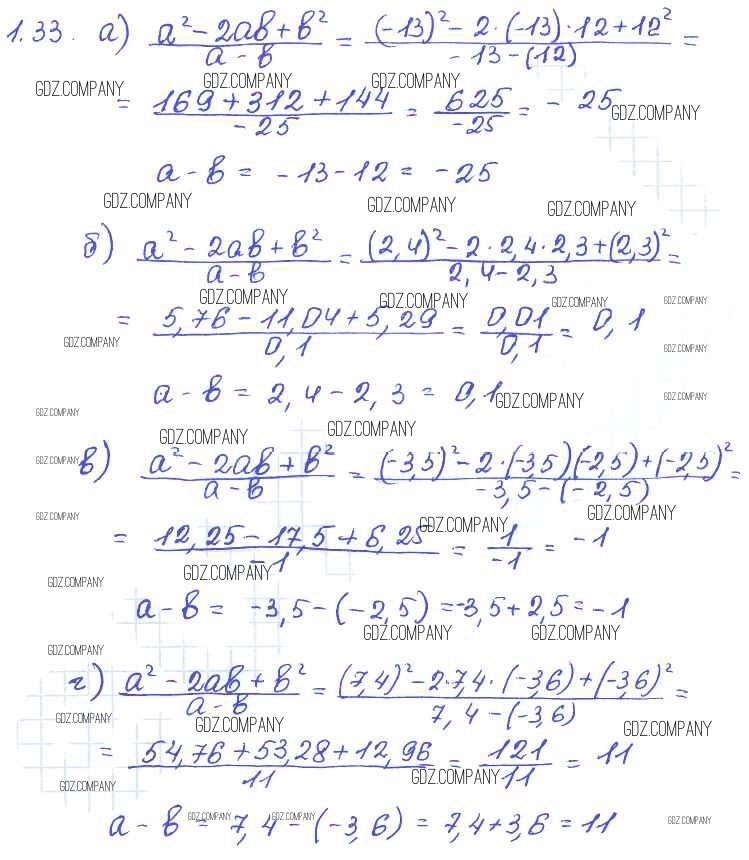 1.33. а) (a² − 2ab + b²)/(a − b) = ((−13)² − 2·(−13)·12 + 12²)/(−13 − (12)) =
GDZ.COMPANY GDZ.COMPANY GDZ.COMPANY
= (169 + 312 + 144)/(−25) = 625/(−25) = − 25 GDZ.COMPANY
a − b = −13 − 12 = −25
GDZ.COMPANY GDZ.COMPANY GDZ.COMPANY
б) (a² − 2ab + b²)/(a − b) = ((2,4)² − 2·2,4·2,3 + (2,3)²)/(2,4 − 2,3) =
GDZ.COMPANY GDZ.COMPANY GDZ.COMPANY GDZ.COMPANY
= (5,76 − 11,04 + 5,29)/(0,1) = (0,01)/(0,1) = 0,1
GDZ.COMPANY GDZ.COMPANY
a − b = 2,4 − 2,3 = 0,1 GDZ.COMPANY GDZ.COMPANY
GDZ.COMPANY
GDZ.COMPANY GDZ.COMPANY
GDZ.COMPANY в) (a² − 2ab + b²)/(a − b) = ((−3,5)² − 2·(−3,5)(−2,5) + (−2,5)²)/(−3,5 − (−2,5)) =
GDZ.COMPANY GDZ.COMPANY
= (12,25 − 17,5 + 6,25)/(−1) = 1/(−1) = −1 GDZ.COMPANY
GDZ.COMPANY GDZ.COMPANY
a − b = −3,5 − (−2,5) = −3,5 + 2,5 = −1
GDZ.COMPANY GDZ.COMPANY
GDZ.COMPANY
г) (a² − 2ab + b²)/(a − b) = ((7,4)² − 2·7,4·(−3,6) + (−3,6)²)/(7,4 − (−3,6)) =
GDZ.COMPANY GDZ.COMPANY GDZ.COMPANY
= (54,76 + 53,28 + 12,96)/11 = 121/11 = 11
GDZ.COMPANY GDZ.COMPANY
a − b = 7,4 − (−3,6) = 7,4 + 3,6 = 11
GDZ.COMPANY GDZ.COMPANY GDZ.COMPANY